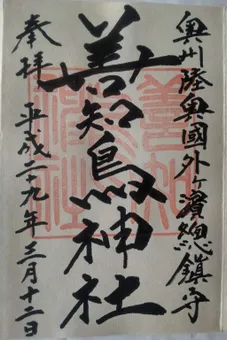 奥州陸奥國外ヶ濱総鎮守
善知鳥神社
奉拝 平成二十九年三月十二日